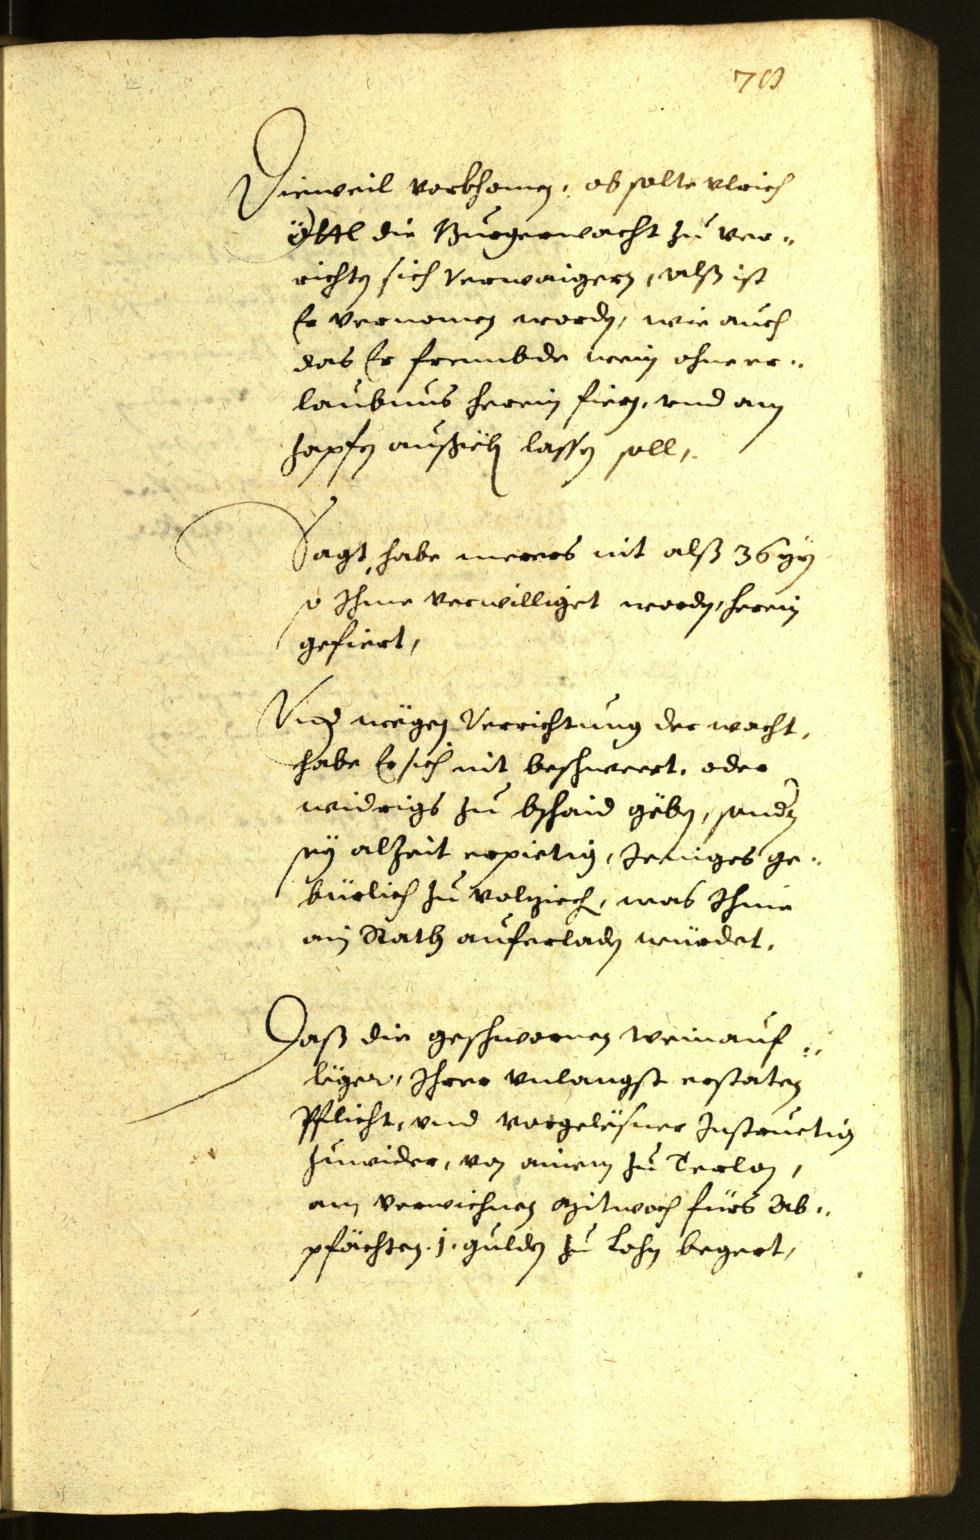 Dieweil vorkhomen, ob solte Ulrich
die Burgerwacht zu ver-
richten sich verwaigern, Alß ist
Er vernomen worden, wie auch
das Er frembde wein ohne er-
laubnus herein fiern, vnd am
zapfen lassen soll,
Sagt, habe merers nit alß 36 yrn
so Ihme verwilliget worden, herein
gefiert,
Vnd wegen Verrichtung der wacht,
habe Er sich nit beschwert, oder
widrigs zu bschaid geben, sonder
sey alzeit erpietig, Jeniges ge-
bürlich zu volziechen, was Ihme
ain Rath auferladen würdet.
Daß die geschwornen Weinauf-
leger, Ihrer vnlangst erstaten
Pflicht, vnd vorgelesner Instruction
zuwider, von ainem zu Terlan,
am verwichnen Mitwoch fürs Ab-
pfächten .1. gulden zu Lohn begert,